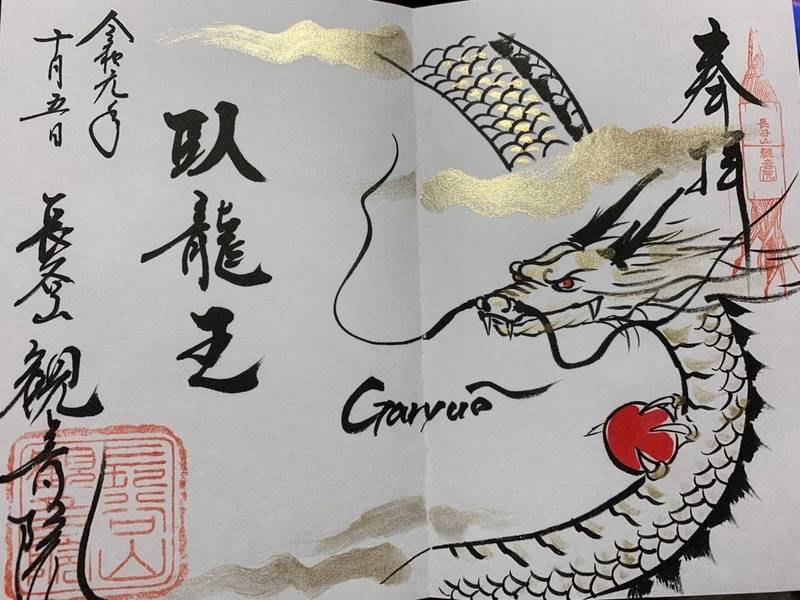 奉拝
長谷山
観音院
臥龍王
Garyuō
令和元年
十月五日
長谷山 観音院
長谷山
観音院